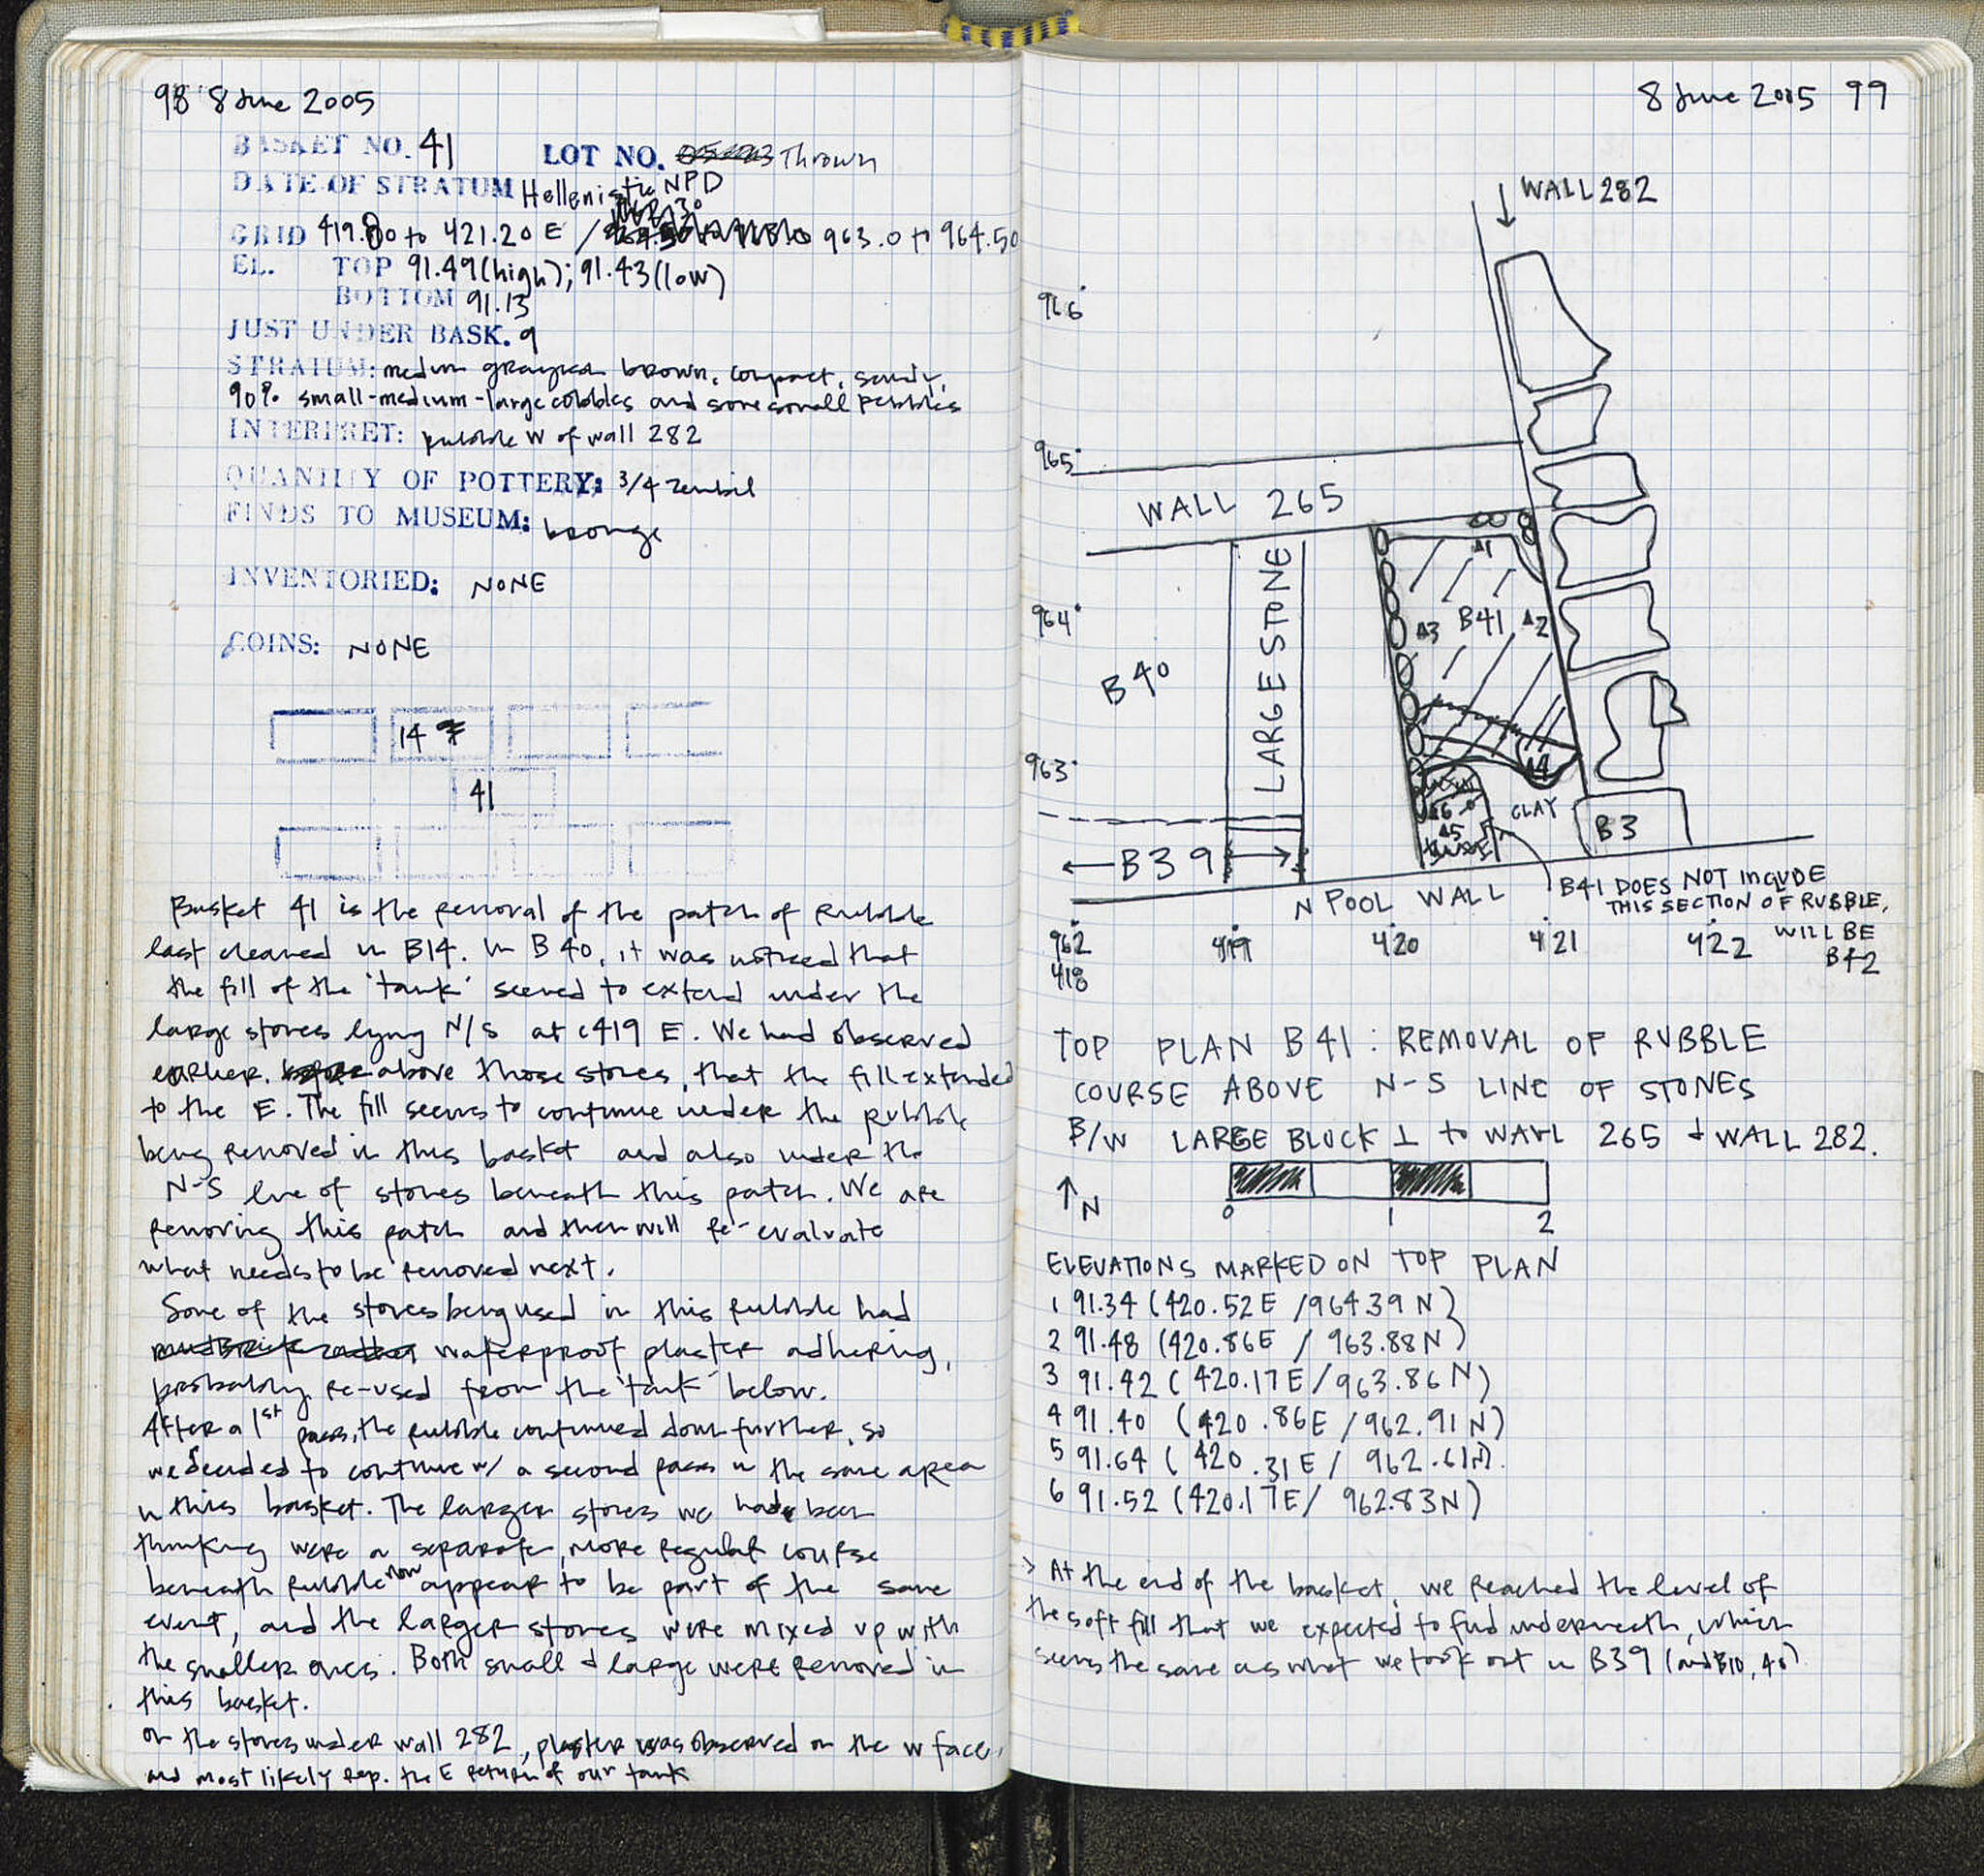 98 8 June 2005
BASKET NO. 41 LOT NO. Thrown
DATE OF STRATUM Hellenistic NPD
GRID 419.80 to 421.20 E / 963.0 to 964.50
EL. TOP 91.49 (high); 91.43 (low)
BOTTOM 91.13
JUST UNDER BASK. 9
STRATUM: medium grayish brown, compact, sandy,
90% small-medium-large cobbles and some small pebbles
INTERPRET: rubble W of wall 282
QUANTITY OF POTTERY: 3/4 zembil
FINDS TO MUSEUM: bronze
INVENTORIED: NONE
COINS: NONE
14
41
Basket 41 is the removal of the patch of rubble
last cleaned in B14. In B40, it was noticed that
the fill of the 'tank' seemed to extend under the
large stones lying N/S at c419 E. We had observed
earlier, above those stones, that the fill extended
to the E. The fill seems to continue under the rubble
being removed in this basket and also under the
N-S line of stones beneath this patch. We are
removing this patch and then will re-evaluate
what needs to be removed next.
Some of the stones being used in this rubble had
waterproof plaster adhering,
probably re-used from the 'tank' below.
After a 1st pass, the rubble continued down further, so
we decided to continue w/ a second pass in the same area
in this basket. The larger stones we had been
thinking were a separate, more regular course
beneath rubble now appear to be part of the same
event, and the larger stones were mixed up with
the smaller ones. Both small & large were removed in
this basket.
On the stones under wall 282, plaster was observed on the W face,
and most likely rep. the E return of our tank
8 June 2005 99
↓ WALL 282
966
965
WALL 265
LARGE STONE
964
B40
Δ1
Δ3 B41 Δ2
963
Δ4
Δ6
Δ5
CLAY
B3
← B39 →
N POOL WALL
B41 DOES NOT INCLUDE
THIS SECTION OF RUBBLE,
WILL BE
B42
962 419 420 421 422
418
TOP PLAN B41: REMOVAL OF RUBBLE
COURSE ABOVE N-S LINE OF STONES
B/W LARGE BLOCK ⊥ to WALL 265 & WALL 282.
↑N
0 1 2
ELEVATIONS MARKED ON TOP PLAN
1 91.34 (420.52E /964.39 N)
2 91.48 (420.86E / 963.88N)
3 91.42 (420.17E/963.86N)
4 91.40 (420.86E /962.91N)
5 91.64 (420.31E/ 962.61N).
6 91.52 (420.17E/ 962.83N)
> At the end of the basket, we reached the level of
the soft fill that we expected to find underneath, which
seems the same as what we took out in B39 (and B10, 40)